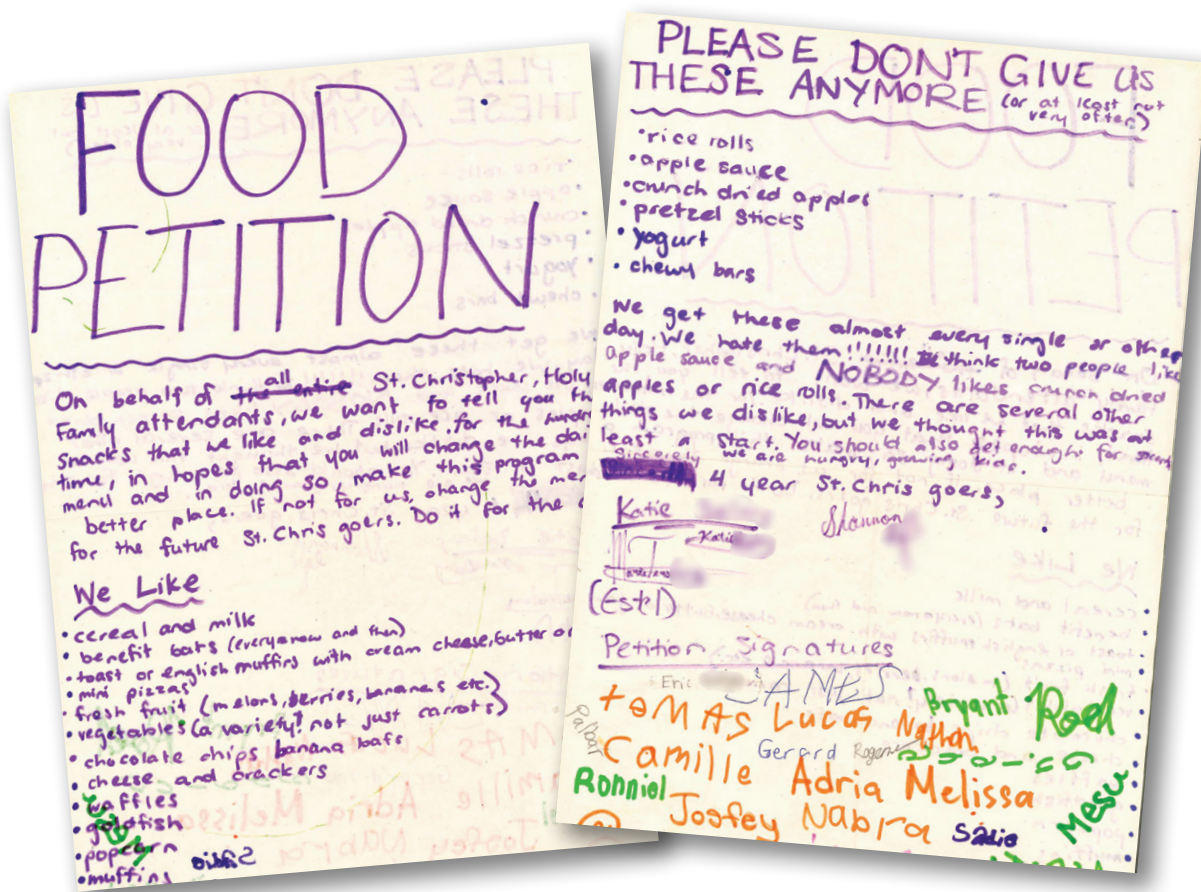 FOOD
PETITION
On behalf of all St. Christopher, Holy
Family attendants, we want to tell you th
snacks that we like and dislike for the
time, in hopes that you will change the dai
menu and in doing so, make this program
better place. If not for us, change the me
for the future St. Chris goers. Do it for the
We Like
• cereal and milk
• benefit bars (everynow and then)
• toast or english muffins with cream cheese, butter or
• mini pizzas
• fresh fruit (melons, berries, bananas etc.)
• vegetables (a variety, not just carrots)
• chocolate chips banana bars
• cheese and crackers
• waffles
• goldfish
• popcorn
• muffins
PLEASE DON'T GIVE US
THESE ANYMORE (or at least not
very often)
• rice rolls
• apple sauce
• crunch dried apples
• pretzel sticks
• yogurt
• chewy bars
We get these almost every single or other
day. We hate them!!!!!!! think two people like
apple sauce and NOBODY likes crunch dried
apples or rice rolls. There are several other
things we dislike, but we thought this was at
least a start. You should also get enough for
we are hungry, growing kids.
Sincerely
4 year St. Chris goers,
Katie
Shannon
Katie
(Estel)
Petition Signatures
Eric JAMES
Palbar toMAS Lucas Nathan Bryant Roel
Camille Gerard Rogene
Ronniel Adria Melissa Mesu
Josfey Nabra Sadie